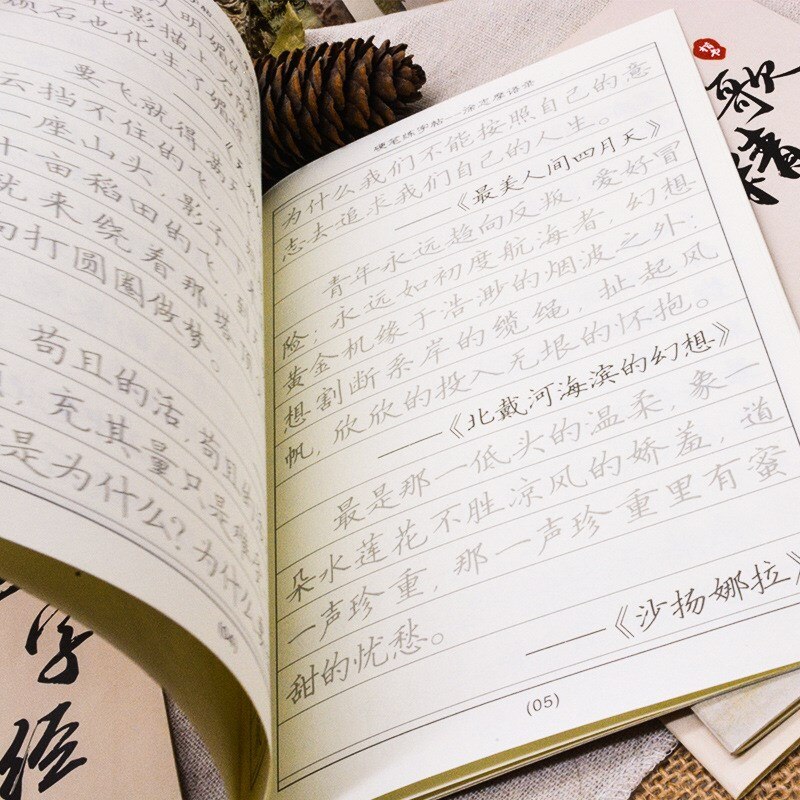 明媚的
化影描上石隙
顽石也化生了媚
要飞就得满
云挡不住的飞
一座山头，影子
十亩稻田的飞，到
来绕着那塔顶
打圆圈做梦。
苟且的活，苟且的
，充其量只是
是为什么？为什么
(04)
硬笔练字帖——徐志摩语录
为什么我们不能按照自己的意
志去追求我们自己的人生。
——《最美人间四月天》
青年永远趋向反叛，爱好冒
险；永远如初度航海者，幻想
黄金机缘于浩渺的烟波之外：
想割断系岸的缆绳，扯起风
帆，欣欣的投入无垠的怀抱。
——《北戴河海滨的幻想》
最是那一低头的温柔，象一
朵水莲花不胜凉风的娇羞，道
一声珍重，那一声珍重里有蜜
甜的忧愁。
——《沙扬娜拉》
(05)
歌
情
字
经